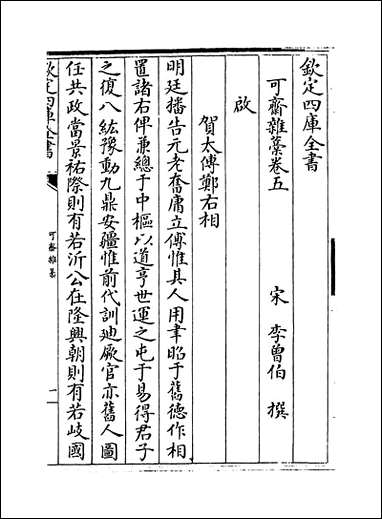 欽定四庫全書
可齋雜藁卷五
宋　李曾伯　撰
啟
賀太傅鄭右相
明廷播告元老奮庸立傅惟其人用聿昭于舊德作相
置諸右俾兼總于中樞以道亨世運之屯于易得君子
之復八紘豫動九鼎安疆惟前代訓廸厥官亦舊人圖
任共政當景祐際則有若沂公在隆興朝則有若岐國
欽定四庫全書
可齋雜藁
一